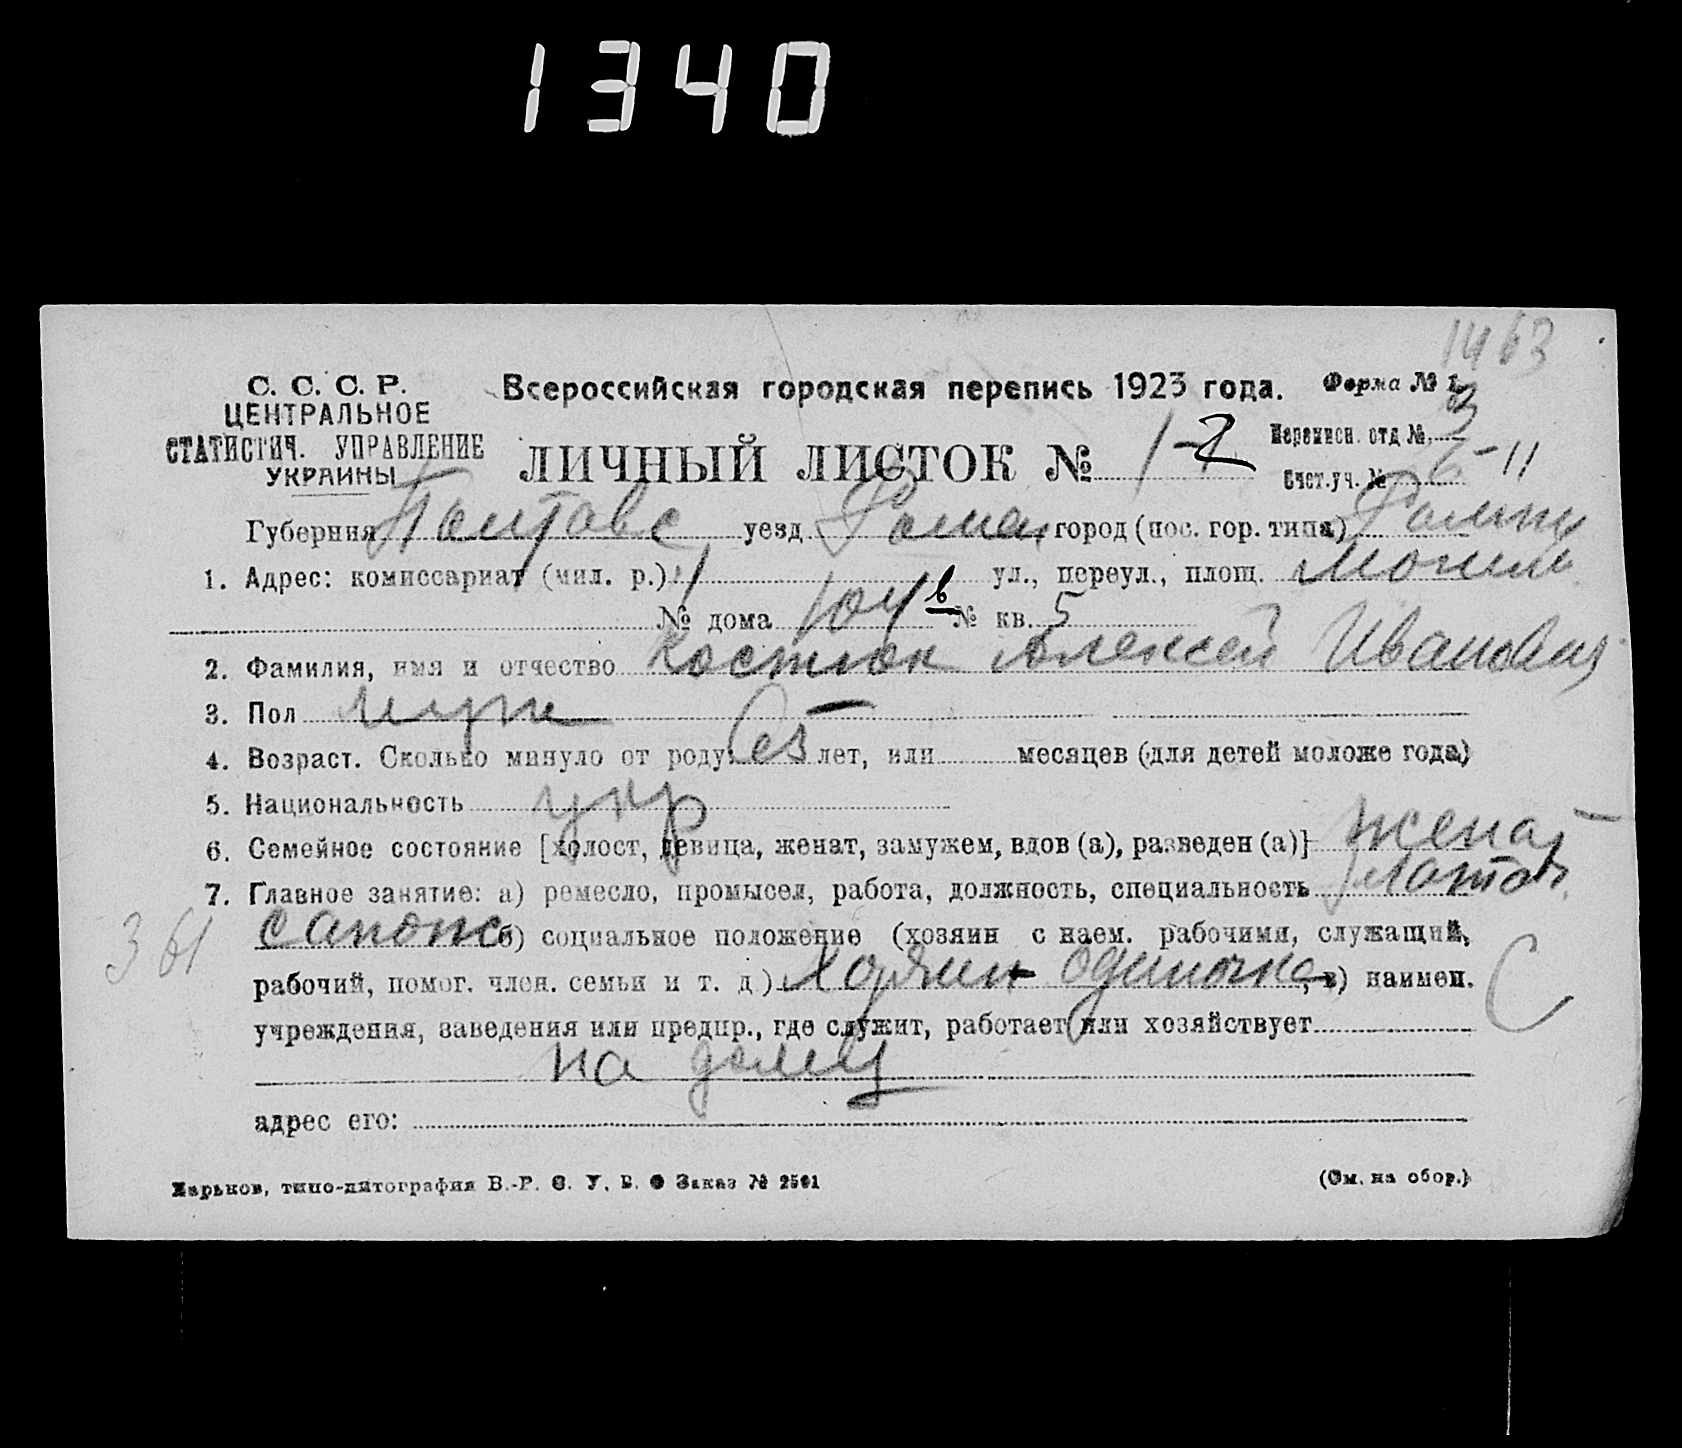 1340
1463
С. С. С. Р.
ЦЕНТРАЛЬНОЕ
СТАТИСТИЧ. УПРАВЛЕНИЕ
УКРАИНЫ
Всероссийская городская перепись 1923 года. Форма № 1
ЛИЧНЫЙ ЛИСТОК № 1-2
Переписн. отд № 3
Счет.уч. № 6-11
Губерния Полтавс уезд Ромен город (пос. гор. типа) Ромны
1. Адрес: комиссариат (мил. р.) 1 ул., переул., площ.
№ дома 104 в № кв. 5
2. Фамилия, имя и отчество Костюк Алексей Иванович
3. Пол муж
4. Возраст. Сколько минуло от роду: 65 лет, или месяцев (для детей моложе года)
5. Национальность укр
6. Семейное состояние [холост, девица, женат, замужем, вдов (а), разведен (а)] женат
7. Главное занятие: а) ремесло, промысел, работа, должность, специальность
361 сапожн б) социальное положение (хозяин с наем. рабочими, служащий,
рабочий, помог. член. семьи и т. д.) Хозяин одиночка, в) наимен.
С
учреждения, заведения или предпр., где служит, работает или хозяйствует
на дому
адрес его:
Харьков, типо-литография В.-Р. С. У. В. О Заказ № 2501
(См. на обор.)